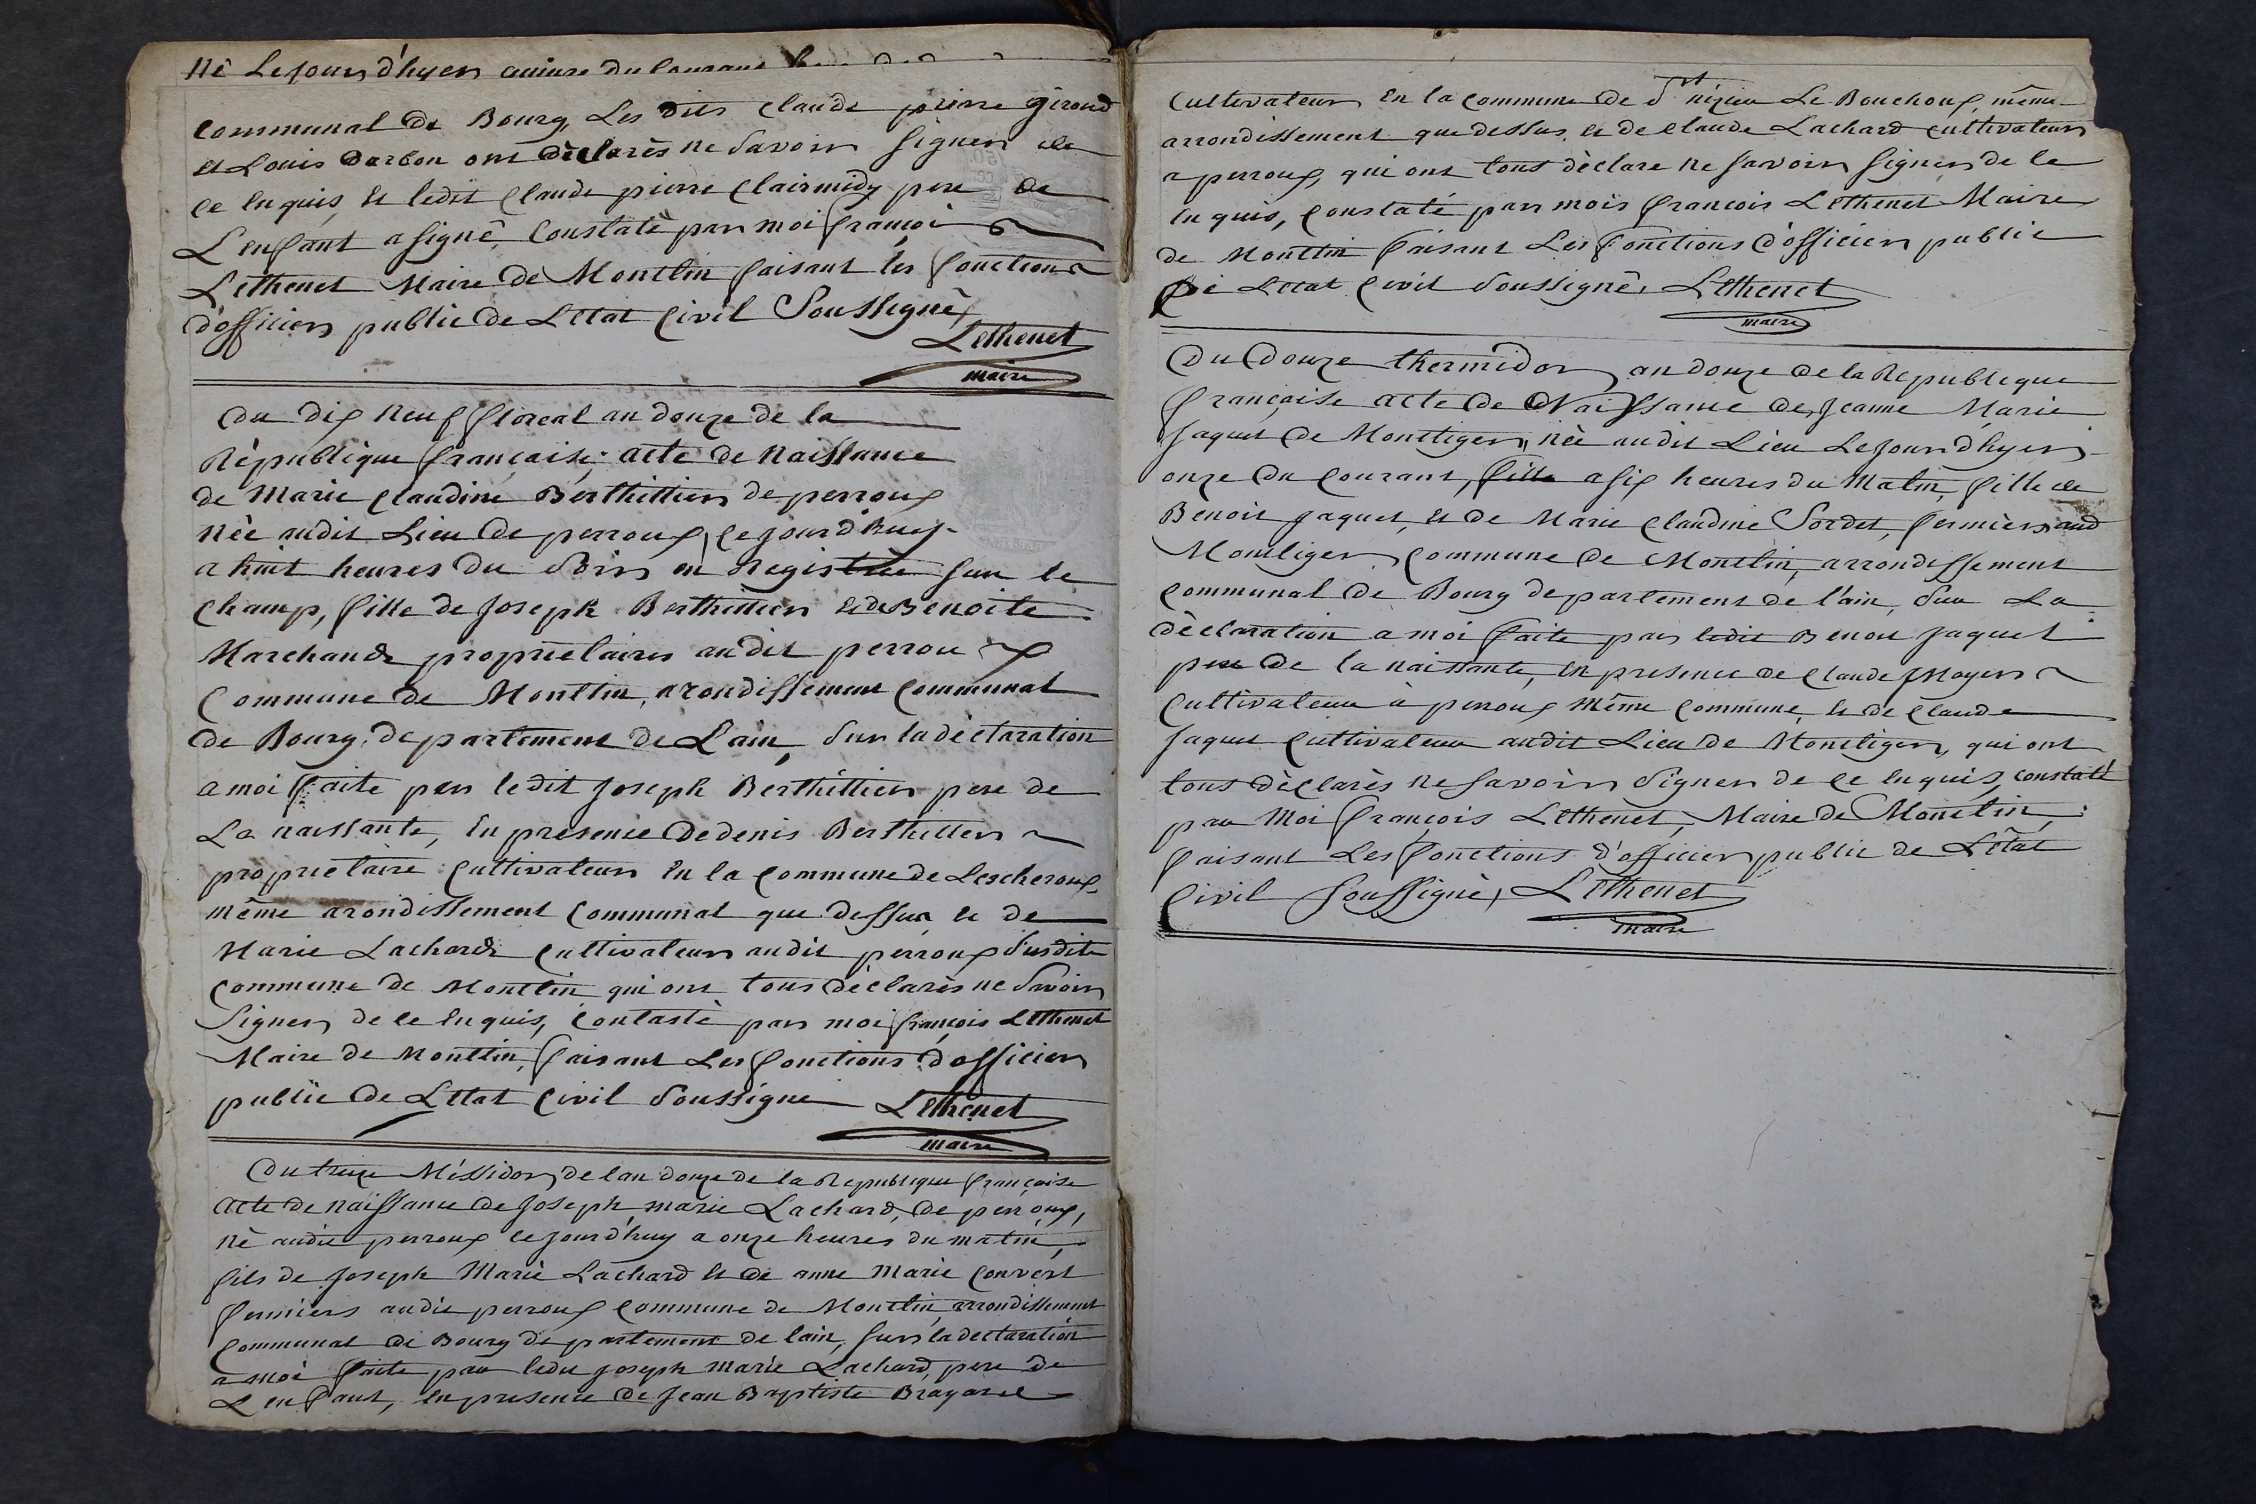 Né Le jour d'hyer quinze du courant
communal de Bourg, Les dits Claude pierre giroud
et Louis Darbon ont déclarès ne Savoir Signer de
ce Enquis, et ledit Claude pierre Clairmidy pere de
L'enfant a signé, Constaté par moi françois
Lethenet Maire de Montlin faisant les fonctions
d'officier public de L'Etat Civil Soussigné,
Lethenet
maire
Du dix neuf floreal an douze de la
République française, acte de Naissance
de Marie Claudine Berthillier de perroux
née audit Lieu de perroux, ce jourd'huy
a huit heures du Soir en Registrée sur le
Champ, fille de Joseph Berthillier et de Benoite
Marchand proprietaires audit perroux
Commune de Montlin, arondissement Communal
de Bourg, departement de L'ain, Sur la déclaration
a moi faite par ledit Joseph Berthillier pere de
La naissante, En presence de denis Berthillier
proprietaire Cultivateur En la Commune de Lescheroux
même arondissement Communal que dessus et de
Marie Lachard Cultivateur audit perroux Susdite
Commune de Montlin qui ont tous déclarès ne Savoir
Signer de ce Enquis, Contasté par moi françois Lethenet
Maire de Montlin, faisant Les fonctions d'officier
public de L'Etat Civil Soussigné Lethenet
maire
Du treize Messidor de l'an douze de la Republique française
acte de naissance de Joseph marie Lachard, de perroux,
né audit perroux ce jourd'huy a onze heures du matin,
fils de Joseph Marie Lachard et de anne Marie Convert
fermiers audit perroux Commune de Montlin, arrondissement
Communal de Bourg departement de l'ain, sur la declaration
a moi faite par ledit Joseph marie Lachard, pere de
L'enfant, En presence de Jean Baptiste Brayard
Cultivateur En la Commune de St nizier Le Bouchoux même
arrondissement que dessus et de Claude Lachard cultivateur
a perroux, qui ont tous déclare ne Savoir Signer de ce
Enquis, Constaté par mois françois Lethenet Maire
de Montlin faisant Les fonctions d'officier public
De L'etat Civil Soussigné, Lethenet
maire
Du Douze thermidor, an douze de la Republique
française acte de Naissance de Jeanne Marie
Jaquet de Montliger, née audit Lieu Le jour d'hyer
onze du Courant, fille a six heures du Matin, fille de
Benoit Jaquet, et de Marie Claudine Sordet, fermiers aud
Montliger, Commune de Montlin, arrondissement
Communal de Bourg departement de l'ain, Sur La
déclaration a moi faite par ledit Benoit Jaquet
pere de la naissante, En presence de Claude Moyer
Cultivateur à perroux même Commune, et de Claude
Jaquet Cultivateur audit Lieu de Montliger, qui ont
tous déclarès ne Savoir Signer de ce Enquis, constaté
par Moi françois Lethenet, Maire de Montlin,
faisant Les fonctions d'officier public de L'état
Civil Soussigné, Lethenet
maire